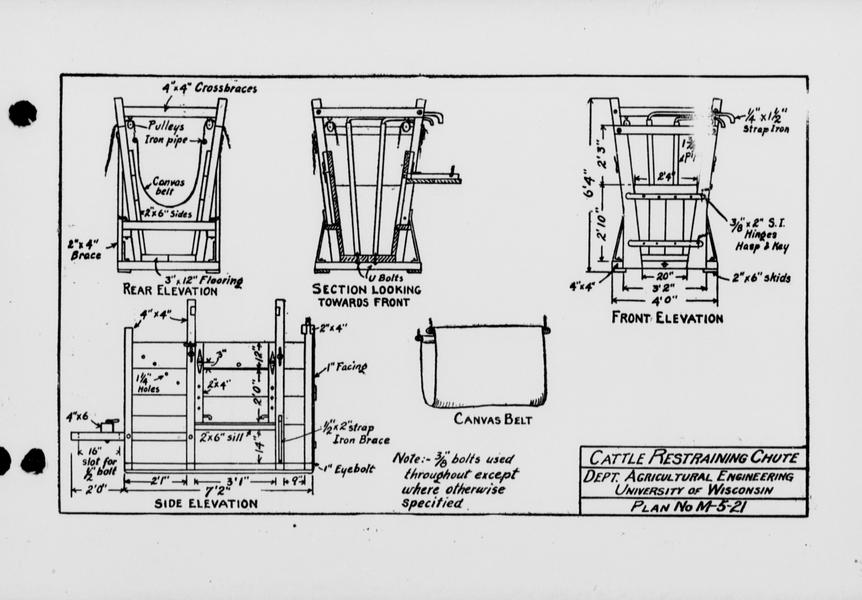 4"x4" Crossbraces
Pulleys
Iron pipe
Canvas
belt
2"x6" Sides
2"x4"
Brace
3"x12" Flooring
REAR ELEVATION
U Bolts
SECTION LOOKING
TOWARDS FRONT
1/4" x 1 1/2"
Strap Iron
2'3"
6'4"
2'4"
2'10"
3/8" x 2" S.I.
Hinges
Hasp & Key
4"x4"
20"
2"x6" skids
3'2"
4'0"
FRONT ELEVATION
4"x4"
2"x4"
3"
12"
1" Facing
1 1/4"
Holes
2"x4"
2'0"
4"x6
2"x6" sill
14"
1/2" x 2" strap
Iron Brace
16"
slot for
1/2" bolt
1" Eyebolt
2'0"
2'1"
3'1"
9"
7'2"
SIDE ELEVATION
CANVAS BELT
Note:- 3/8" bolts used
throughout except
where otherwise
specified
CATTLE RESTRAINING CHUTE
DEPT. AGRICULTURAL ENGINEERING
UNIVERSITY OF WISCONSIN
PLAN No M-5-21